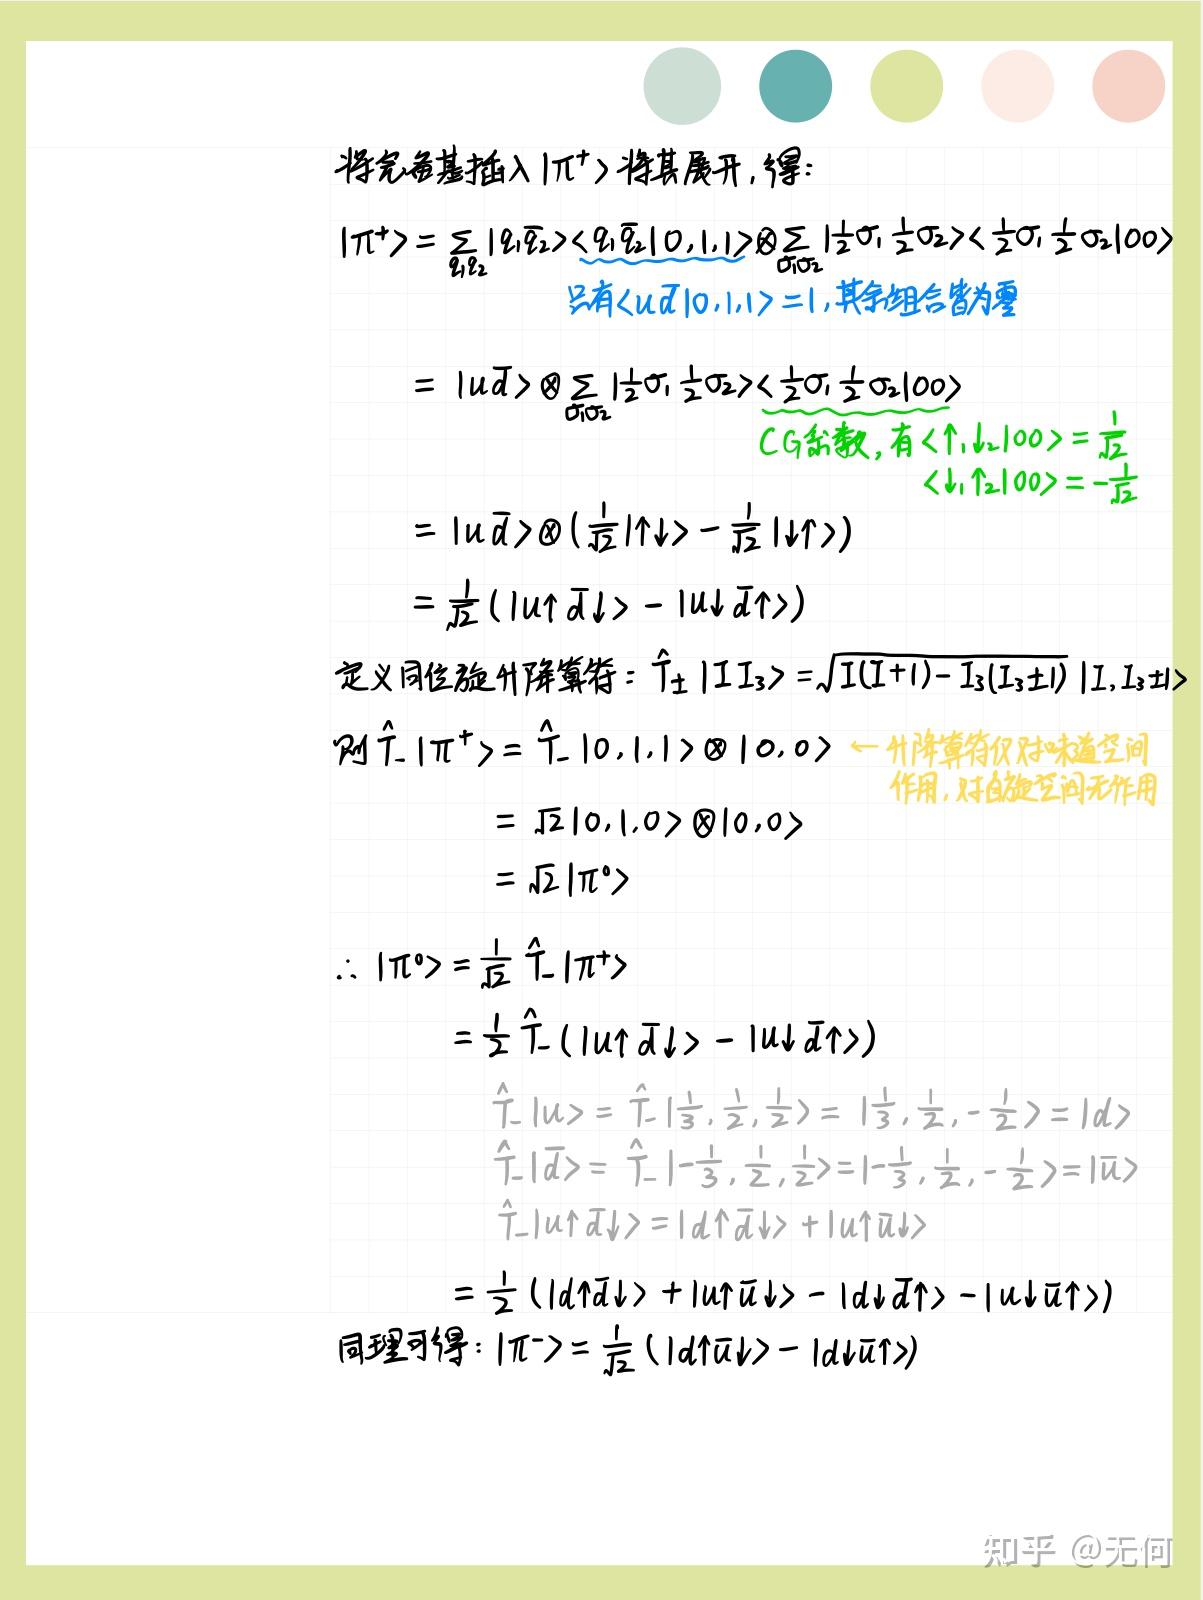 将完备基插入|π⁺>将其展开,得:
|π⁺> = ∑_{q₁q₂} |q₁q̄₂><q₁q̄₂|0,1,1>⊗∑_{σ₁σ₂} |½σ₁ ½σ₂><½σ₁ ½σ₂|00>
只有<ud̄|0,1,1> = 1,其余组合皆为零
= |ud̄>⊗∑_{σ₁σ₂} |½σ₁ ½σ₂><½σ₁ ½σ₂|00>
CG系数,有<↑₁↓₂|00> = 1/√2
<↓₁↑₂|00> = -1/√2
= |ud̄>⊗(1/√2|↑↓> - 1/√2|↓↑>)
= 1/√2(|u↑d̄↓> - |u↓d̄↑>)
定义同位旋升降算符: T̂± |I I₃> = √(I(I+1) - I₃(I₃±1)) |I, I₃±1>
则 T̂₋|π⁺> = T̂₋|0,1,1>⊗|0,0> ← 升降算符仅对味道空间
作用,对自旋空间无作用
= √2|0,1,0>⊗|0,0>
= √2|π⁰>
∴ |π⁰> = 1/√2 T̂₋|π⁺>
= ½ T̂₋(|u↑d̄↓> - |u↓d̄↑>)
T̂₋|u> = T̂₋|⅓, ½, ½> = |⅓, ½, -½> = |d>
T̂₋|d̄> = T̂₋|-⅓, ½, ½> = |-⅓, ½, -½> = |ū>
T̂₋|u↑d̄↓> = |d↑d̄↓> + |u↑ū↓>
= ½(|d↑d̄↓> + |u↑ū↓> - |d↓d̄↑> - |u↓ū↑>)
同理可得: |π⁻> = 1/√2(|d↑ū↓> - |d↓ū↑>)
知乎 @无何